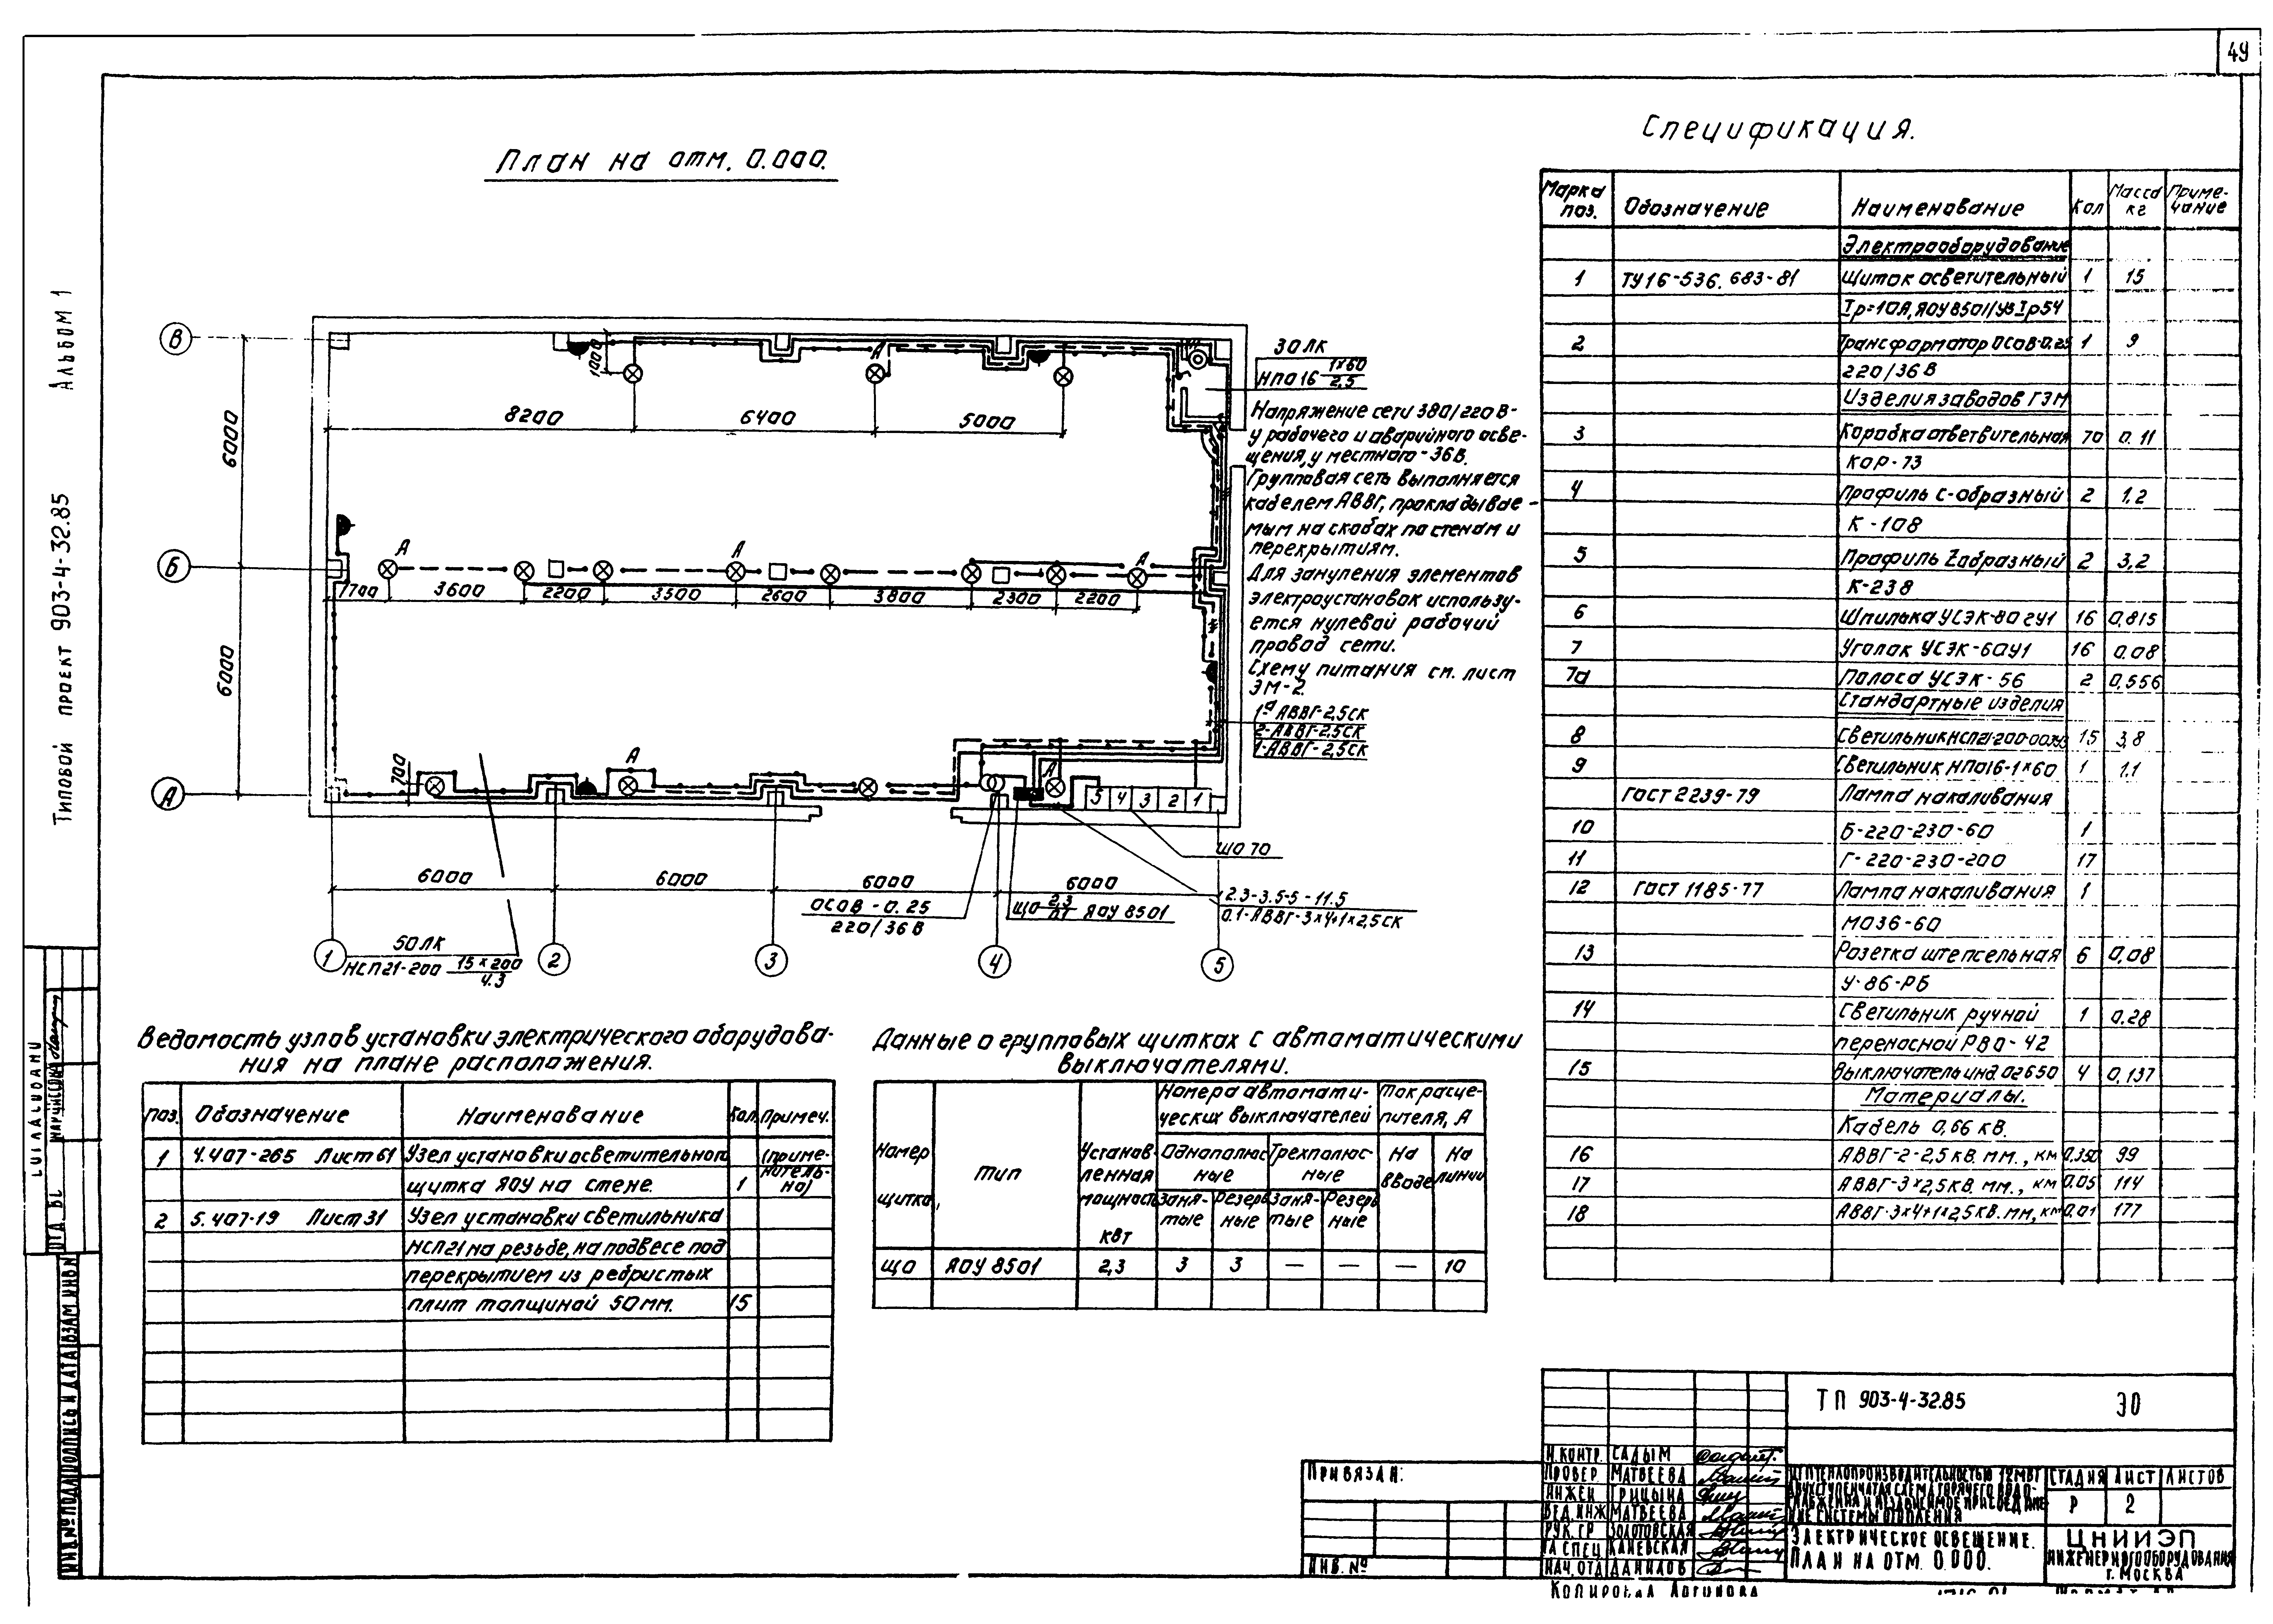 49
План на отм. 0.000.
Альбом 1
Типовой проект 903-4-32.85
В
Б
А
6000
6000
1000
8200
6400
5000
А
30 ЛК
НПО16 1×60
2,5
Напряжение сети 380/220В-
у рабочего и аварийного осве-
щения, у местного - 36В.
Групповая сеть выполняется
кабелем АВВГ, прокладывае-
мым на скобах по стенам и
перекрытиям.
Для зануления элементов
электроустановок использу-
ется нулевой рабочий
провод сети.
Схему питания см. лист
ЭМ-2.
А
А
А
1700
3600
2200
3500
2600
3800
2300
2200
1а АВВГ-2,5СК
2-АВВГ-2,5СК
1-АВВГ-2,5СК
700
А
А
5 4 3 2 1
ЩО 70
6000
6000
6000
6000
ОСОВ-0.25
220/36В
ЩО 2,3
0,1 ЯОУ 8501
2.3-3.5-5-11.5
0.1-АВВГ-3×4+1×2,5СК
50 ЛК
НСП21-200 15×200
4.3
1
2
3
4
5
Спецификация.
Марка поз. Обозначение Наименование Кол Масса кг Приме-чание
Электрооборудование
1 ТУ16-536.683-81 Щиток осветительный 1 15
Iр=10А, ЯОУ8501/У3 Iр54
2 Трансформатор ОСОВ-0,25 1 9
220/36В
Изделия заводов ГЭМ
3 Коробка ответвительная 70 0.11
КОР-73
4 Профиль С-образный 2 1,2
К-108
5 Профиль Zобразный 2 3,2
К-238
6 Шпилька УСЭК-80 2У1 16 0,815
7 Уголок УСЭК-60У1 16 0.08
7а Полоса УСЭК-56 2 0,556
Стандартные изделия
8 Светильник НСП21-200- 15 3,8
9 Светильник НПО16-1×60 1 1.1
ГОСТ 2239-79 Лампа накаливания
10 Б-220-230-60 1
11 Г-220-230-200 17
12 ГОСТ 1185-77 Лампа накаливания 1
МО36-60
13 Розетка штепсельная 6 0,08
У-86-РБ
14 Светильник ручной 1 0.28
переносной РВО-42
15 Выключатель инд.02650 4 0,137
Материалы.
Кабель 0,66 кВ.
16 АВВГ-2-2,5 кв. мм., км 0,350 99
17 АВВГ-3×2,5кв. мм., км 0.05 114
18 АВВГ-3×4+1×2,5кв.мм, км 0.01 177
Ведомость узлов установки электрического оборудова-
ния на плане расположения.
поз. Обозначение Наименование Кол. Примеч.
1 4.407-265 Лист 61 Узел установки осветительного (приме-
щитка ЯОУ на стене. 1 нитель-
но)
2 5.407-19 Лист 31 Узел установки светильника
НСП21 на резьбе, на подвесе под
перекрытием из ребристых
плит толщиной 50 мм. 15
Данные о групповых щитках с автоматическими
выключателями.
Номер щитка, тип Установленная мощность кВт
Номера автомати-
ческих выключателей
Ток расце-
пителя, А
Однополюс-
ные
Трехполюс-
ные
На
вводе
На
линии
Заня-
тые
Резерв
ные
Заня-
тые
Резерв
ные
ЩО ЯОУ 8501 2,3 3 3 — — — 10
ТП 903-4-32.85 ЭО
Привязан:
Инв. №
Н.контр. Садым
Провер Матвеева
Инжен Грицына
Вед.инж Матвеева
Рук.гр Золотовская
Гл спец Каневская
Нач.отд Данилов
ЦТП теплопроизводительностью 12МВт
двухступенчатая схема горячего водо-
снабжения и независимое присоедине-
ние системы отопления
Стадия Лист Листов
Р 2
Электрическое освещение.
План на отм. 0.000.
ЦНИИЭП
инженерного оборудования
г. Москва
Копировал Логинова
Инв № подл Подпись и дата Взам инв №